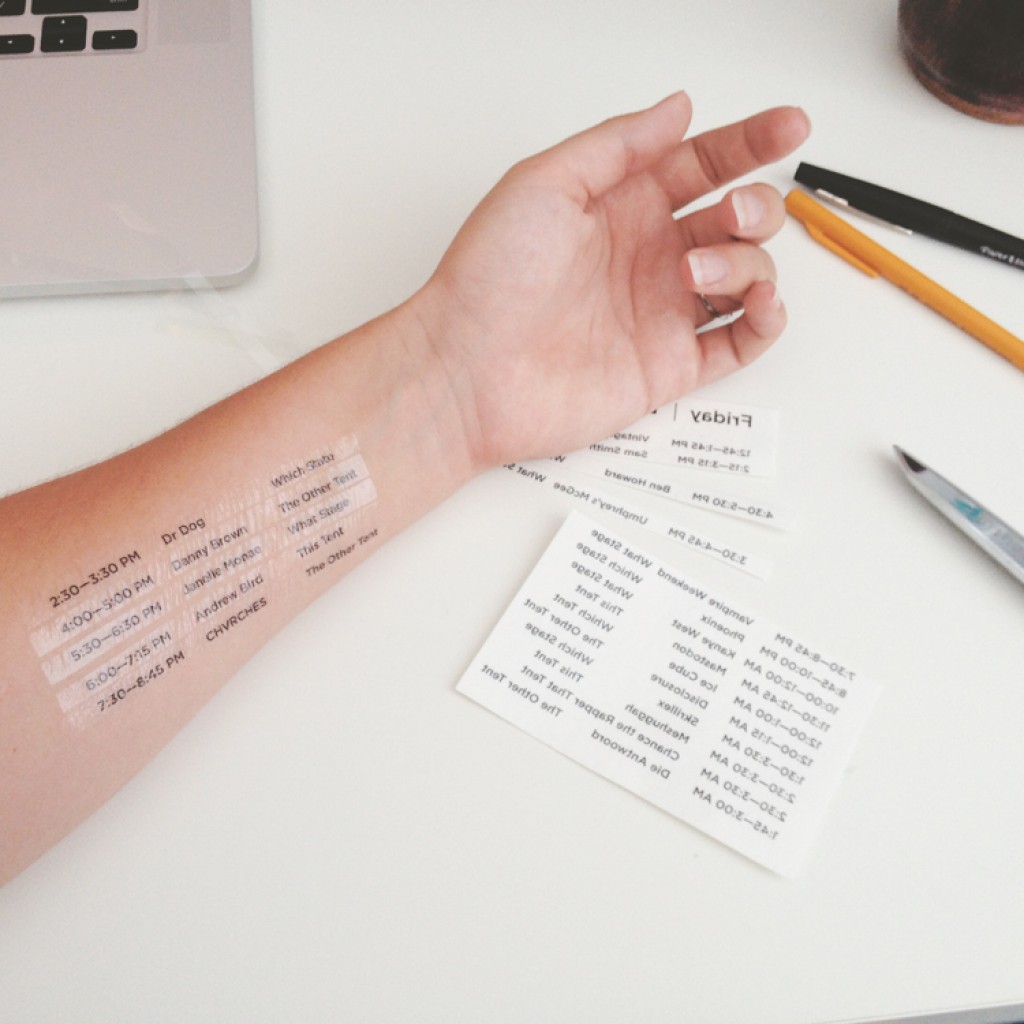 2:30—3:30 PM Dr Dog Which Statu
4:00—5:00 PM Danny Brown The Other Tent
5:30—6:30 PM Janelle Monae What Stage
6:00—7:15 PM Andrew Bird This Tent
7:30—8:45 PM CHVRCHES The Other Tent
Friday |
12:45—1:45 PM
2:15—3:15 PM Sam Smith
4:30—5:30 PM Ben Howard What
3:30—4:45 PM Umphrey's McGee What S
7:30—8:45 PM Vampire Weekend What Stage
8:45—10:00 PM Phoenix Which Stage
10:00—12:00 AM Kanye West What Stage
11:30—12:45 AM Mastodon This Tent
12:00—1:00 AM Ice Cube Which Tent
12:00—1:15 AM Disclosure The Other Tent
1:30—3:30 AM Skrillex Which Stage
2:30—3:30 AM Meshuggah This Tent
2:30—3:30 AM Chance the Rapper That Tent
1:45—3:00 AM Die Antwoord The Other Tent